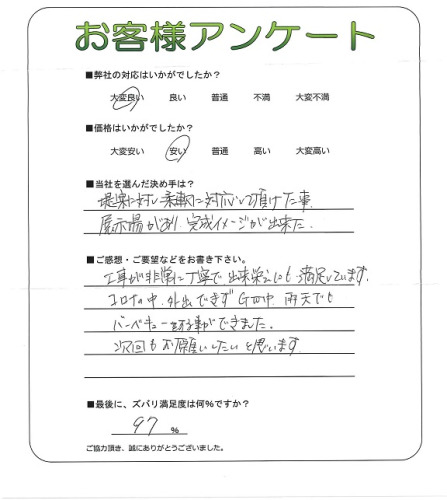 お客様アンケート
■弊社の対応はいかがでしたか?
大変良い 良い 普通 不満 大変不満
■価格はいかがでしたか?
大変安い 安い 普通 高い 大変高い
■当社を選んだ決め手は?
提案に対し柔軟に対応して頂けた事.
展示場があり、完成イメージが出来た.
■ご感想・ご要望などをお書き下さい。
工事が非常に丁寧で出来栄えにも満足しています.
コロナの中、外出できずGW中 雨天でも
バーベキューをする事ができました.
次回もお願いしたいと思います.
■最後に、ズバリ満足度は何%ですか?
97 %
ご協力頂き、誠にありがとうございました。